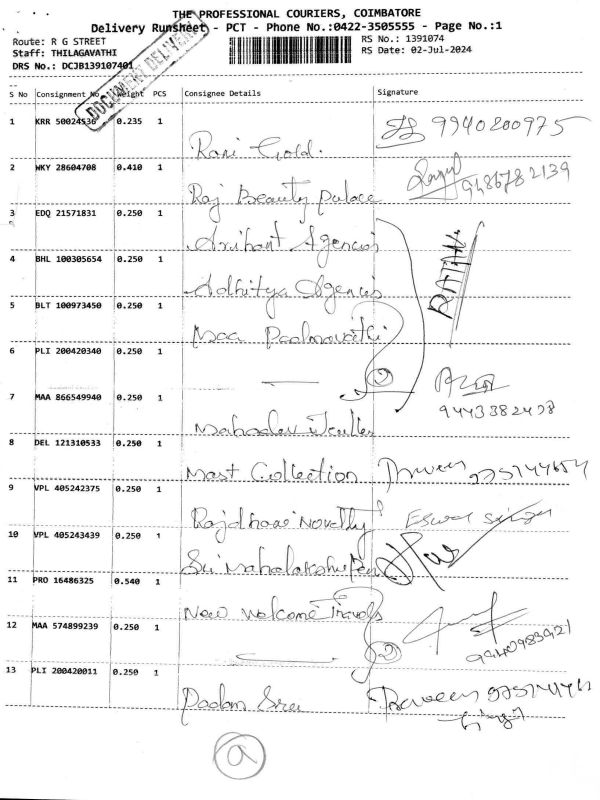 THE PROFESSIONAL COURIERS, COIMBATORE
Delivery Runsheet - PCT - Phone No.:0422-3505555 - Page No.:1
Route: R G STREET
RS No.: 1391074
Staff: THILAGAVATHI
RS Date: 02-Jul-2024
DRS No.: DCJB139107401
DOCUMENT DELIVERY
S No Consignment No Weight PCS Consignee Details Signature
1 KRR 50024536 0.235 1 Rani Gold. 9940800975
2 WKY 28604708 0.410 1 Raj Beauty palace 9486782139
3 EDQ 21571831 0.250 1 Arihant Agencies
4 BHL 100305654 0.250 1 Adhitya Agencies RATAN
5 BLT 100973450 0.250 1 Maa Padmavathi
6 PLI 200420340 0.250 1
7 MAA 866549940 0.250 1 Mahadev 9443382478
8 DEL 121310533 0.250 1 Mast Collection Praveen
9 VPL 405242375 0.250 1 Novelty Eswar Singh
10 VPL 405243439 0.250 1 Sri Mahalakshmi
11 PRO 16486325 0.540 1 New Welcome Travels
12 MAA 574899239 0.250 1 9940983921
13 PLI 200420011 0.250 1 Padam Sree Praveen
Singh
a